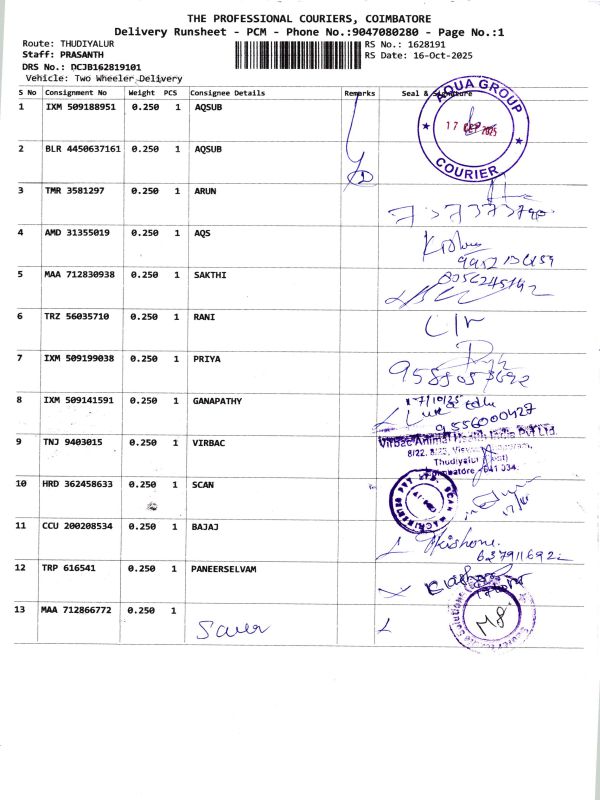 THE PROFESSIONAL COURIERS, COIMBATORE
Delivery Runsheet - PCM - Phone No.:9047080280 - Page No.:1
Route: THUDIYALUR
RS No.: 1628191
Staff: PRASANTH
RS Date: 16-Oct-2025
DRS No.: DCJB162819101
Vehicle: Two Wheeler Delivery
S No Consignment No Weight PCS Consignee Details Remarks Seal & Signature
1 IXM 509188951 0.250 1 AQSUB
AQUA GROUP
COURIER
2 BLR 4450637161 0.250 1 AQSUB
3 TMR 3581297 0.250 1 ARUN
4 AMD 31355019 0.250 1 AQS
5 MAA 712830938 0.250 1 SAKTHI
6 TRZ 56035710 0.250 1 RANI
7 IXM 509199038 0.250 1 PRIYA
8 IXM 509141591 0.250 1 GANAPATHY
17/10/25
9556000427
9 TNJ 9403015 0.250 1 VIRBAC
Virbac Animal Health India Pvt Ltd.
Thudiyalur
Coimbatore - 641 034.
10 HRD 362458633 0.250 1 SCAN
11 CCU 200208534 0.250 1 BAJAJ
12 TRP 616541 0.250 1 PANEERSELVAM
13 MAA 712866772 0.250 1